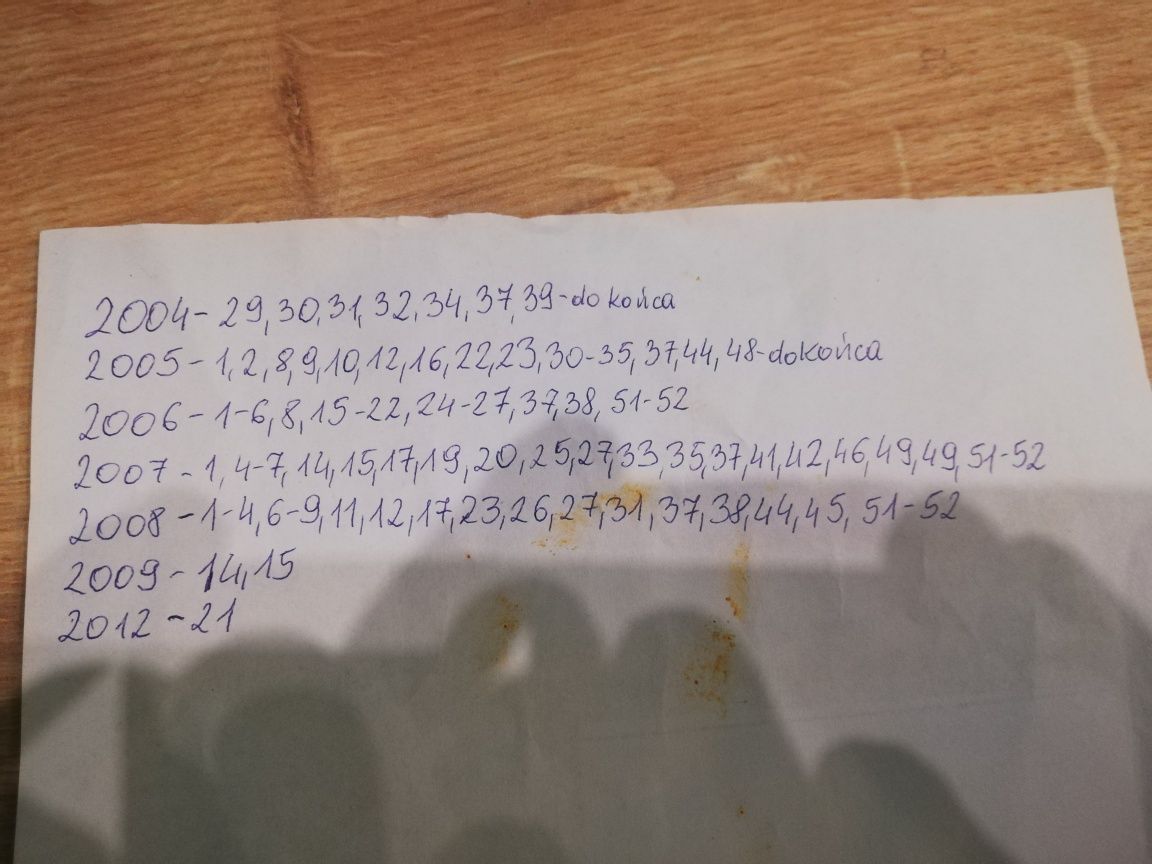 2004 - 29, 30, 31, 32, 34, 37, 39 - do końca
2005 - 1, 2, 8, 9, 10, 12, 16, 22, 23, 30-35, 37, 44, 48 - do końca
2006 - 1-6, 8, 15-22, 24-27, 37, 38, 51-52
2007 - 1, 4-7, 14, 15, 17, 19, 20, 25, 27, 33, 35, 37, 41, 42, 46, 49, 49, 51-52
2008 - 1-4, 6-9, 11, 12, 17, 23, 26, 27, 31, 37, 38, 44, 45, 51-52
2009 - 14, 15
2012 - 21